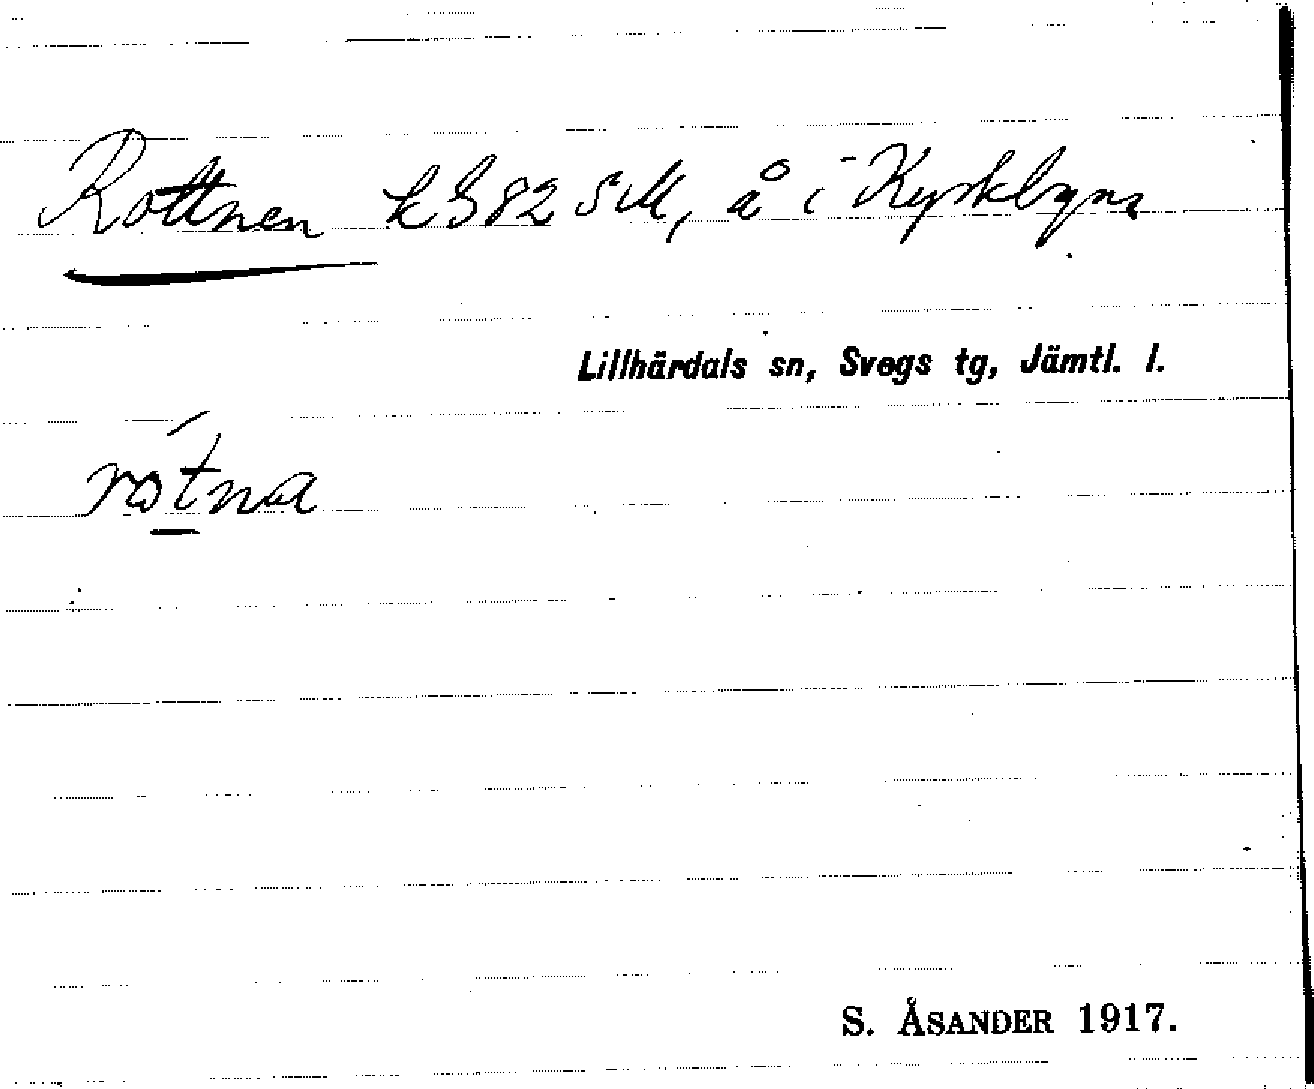 Rottnen k382 SM, å i Kyrkbyn
Lillhärdals sn, Svegs tg, Jämtl. l.
rótna
S. ÅSANDER 1917.